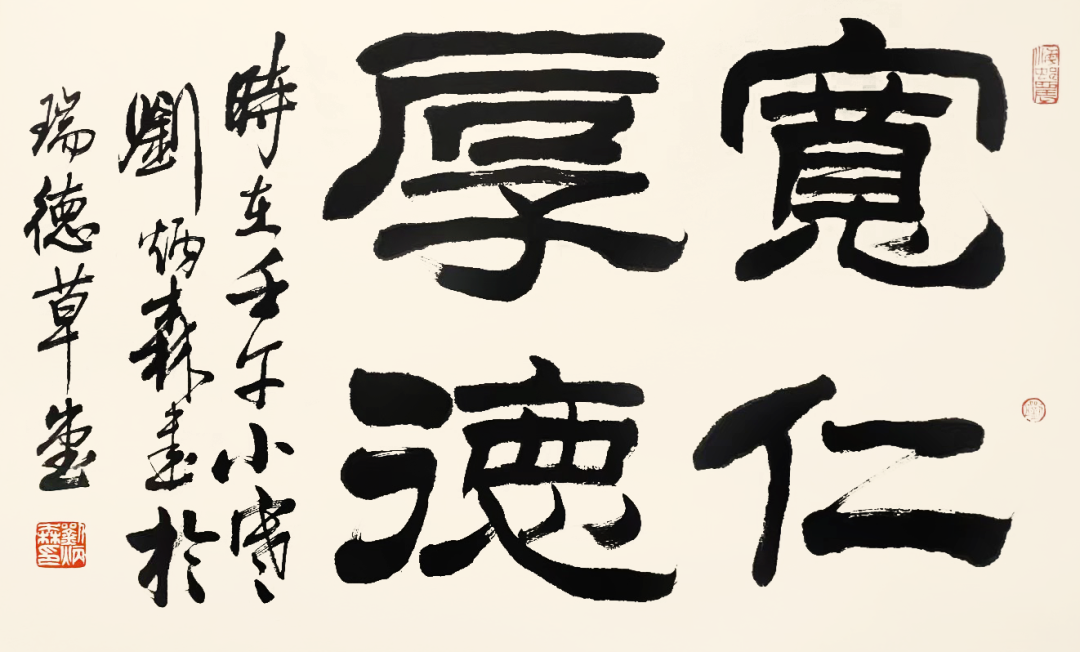 寬仁
厚德
時在壬午小寒
劉炳森書於
瑞德草堂
劉炳森印